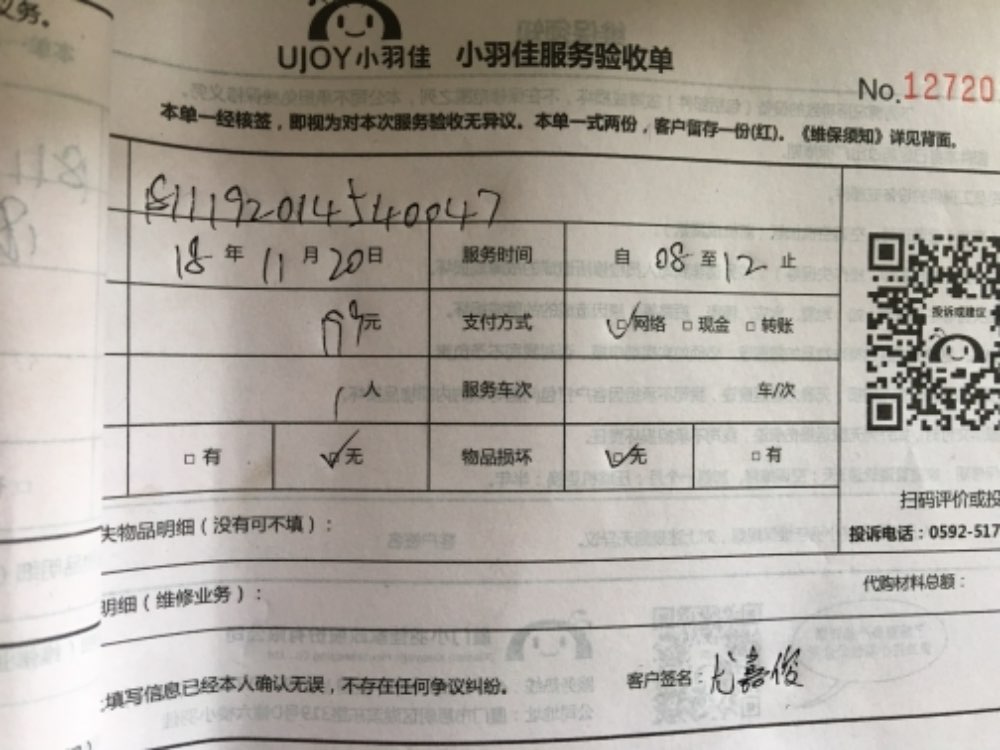 义务。
UJOY小羽佳 小羽佳服务验收单
No.12720
本单一经核签，即视为对本次服务验收无异议。本单一式两份，客户留存一份(红)。《维保须知》详见背面。
1811192014540047
18年11月20日 服务时间 自08至12止
元 支付方式 网络 现金 转账
1人 服务车次 车/次
有 无 物品损坏 无 有
投诉或建议
扫码评价或投
失物品明细（没有可不填）：
投诉电话：0592-517
明细（维修业务）：
代购材料总额：
填写信息已经本人确认无误，不存在任何争议纠纷。
客户签名：尤嘉俊